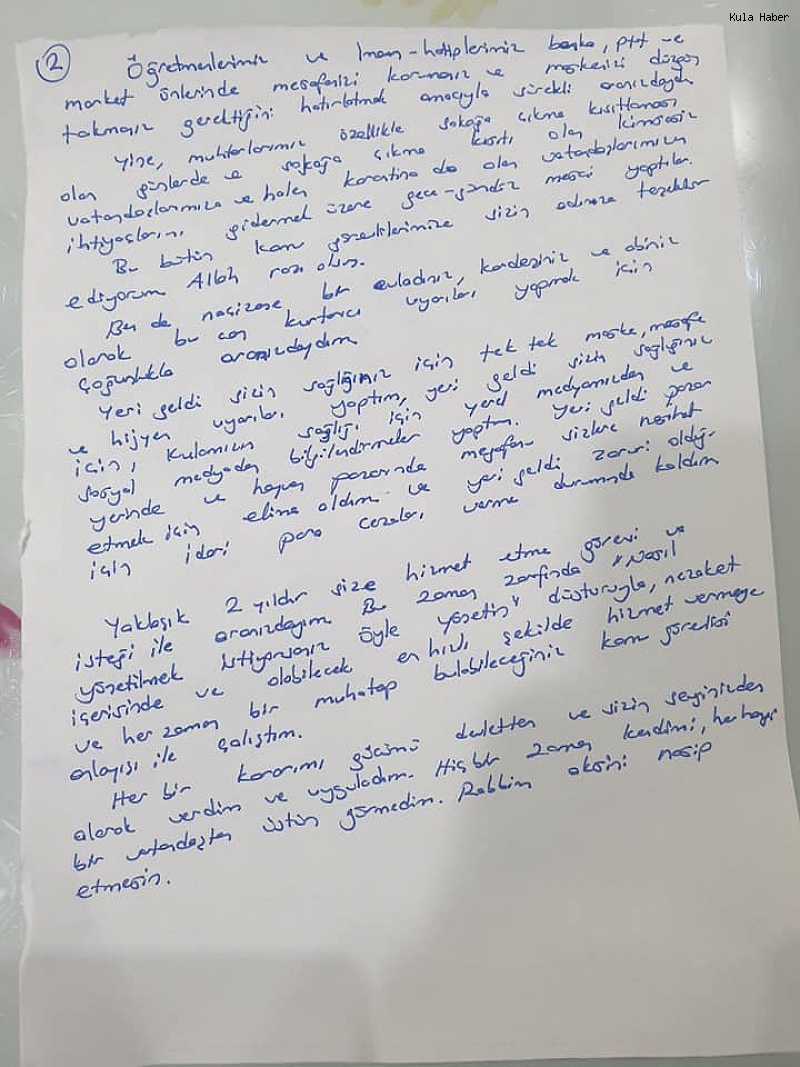 Kula Haber
2
Öğretmenlerimiz ve İmam-hatiplerimiz banka, ptt ve
market önlerinde mesafenizi korumanız ve maskenizi düzgün
takmanız gerektiğini hatırlatmak amacıyla sürekli aranızdaydı
Yine, muhtarlarımız özellikle sokağa çıkma kısıtlaması
olan günlerde ve sokağa çıkma kısıtı olan kimsesiz
vatandaşlarımıza ve halen karantina da olan vatandaşlarımızın
ihtiyaçlarını gidermek üzere gece-gündüz mesai yaptılar.
Bu bütün kamu görevlilerimize sizin adınıza teşekkür
ediyorum Allah razı olsun.
Ben de naçizane bir evladınız, kardeşiniz ve abiniz
olarak bu can kurtarıcı uyarıları yapmak için
çoğunlukla aranızdaydım
Yeri geldi sizin sağlığınız için tek tek maske, mesafe
ve hijyen uyarıları yaptım, yeri geldi sizin sağlığınız
için, Kulamızın sağlığı için yerel medyamızdan ve
sosyal medyadan bilgilendirmeler yaptım. Yeri geldi pazar
yerinde ve hayvan pazarında megafonu sizlere nasihat
etmek için elime aldım ve yeri geldi zaruri olduğu
için idari para cezaları verme durumunda kaldım
Yaklaşık 2 yıldır size hizmet etme görevi ve
isteği ile aranızdayım. Bu zaman zarfında "Nasıl
yönetilmek istiyorsanız öyle yönetin" düsturuyla, nezaket
içerisinde ve olabilecek en hızlı şekilde hizmet vermeye
ve her zaman bir muhatap bulabileceğiniz kamu görevlisi
anlayışı ile çalıştım.
Her bir kararımı gücümü devletten ve sizin sevginizden
alarak verdim ve uyguladım. Hiçbir zaman kendimi, herhangi
bir vatandaştan üstün görmedim. Rabbim aksini nasip
etmesin.